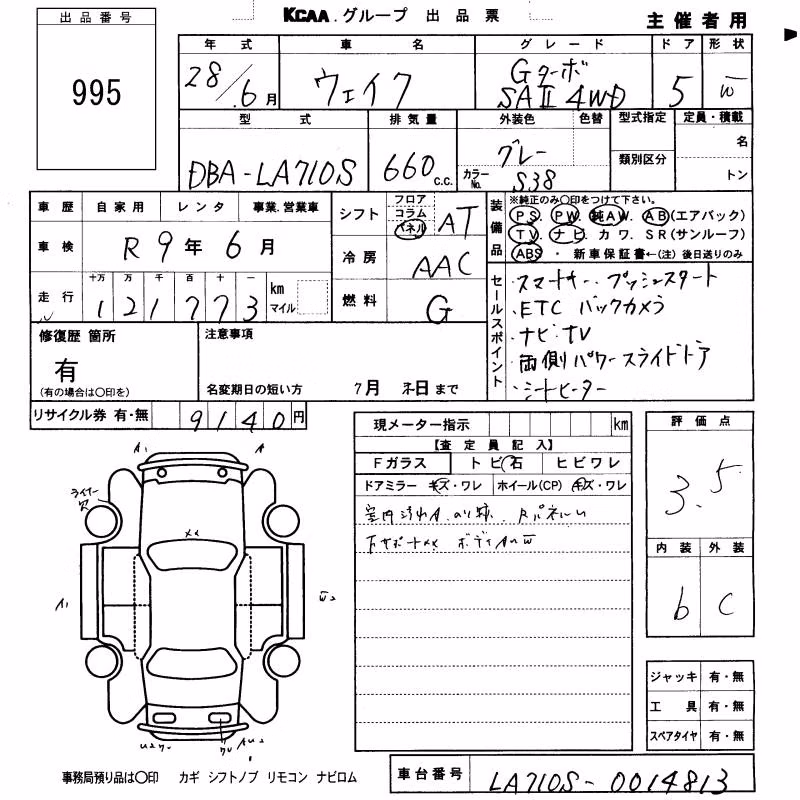 出品番号
995
KCAA.グループ 出品票
主催者用
年式 車名 グレード ドア 形状
28/6月 ウェイク Gターボ SAⅡ 4WD 5 W
型式 排気量 外装色 色替 型式指定 定員・積載
DBA-LA710S 660 c.c. グレー カラーNo. S38 類別区分 名
トン
車歴 自家用 レンタ 事業.営業車
車検 R9年6月
走行 十万 万 千 百 十 一
121773 km マイル
シフト フロア コラム パネル AT
冷房 AAC
燃料 G
装備品 ※純正のみ○印をつけて下さい。
PS. PW. 純AW. AB(エアバック)
TV. ナビ. カワ. SR(サンルーフ)
ABS ・ 新車保証書←(注)後日送りのみ
セールスポイント
・スマートキー プッシュスタート
・ETC バックカメラ
・ナビ・TV
・両側パワースライドドア
・シートヒーター
修復歴 箇所
有
(有の場合は○印を)
注意事項
名変期日の短い方 7月 末日まで
リサイクル券 有・無 9140円
現メーター指示 km
【査定員記入】
Fガラス トビ石 ヒビワレ
ドアミラー キズ・ワレ ホイール(CP) キズ・ワレ
室内汚れA のり跡
下サポート ボディAUW
評価点
3.5
内装 外装
b C
ジャッキ 有・無
工具 有・無
スペアタイヤ 有・無
A1 A
ライナー欠
A1 W2
事務局預り品は○印 カギ シフトノブ リモコン ナビロム
車台番号 LA710S-0014813